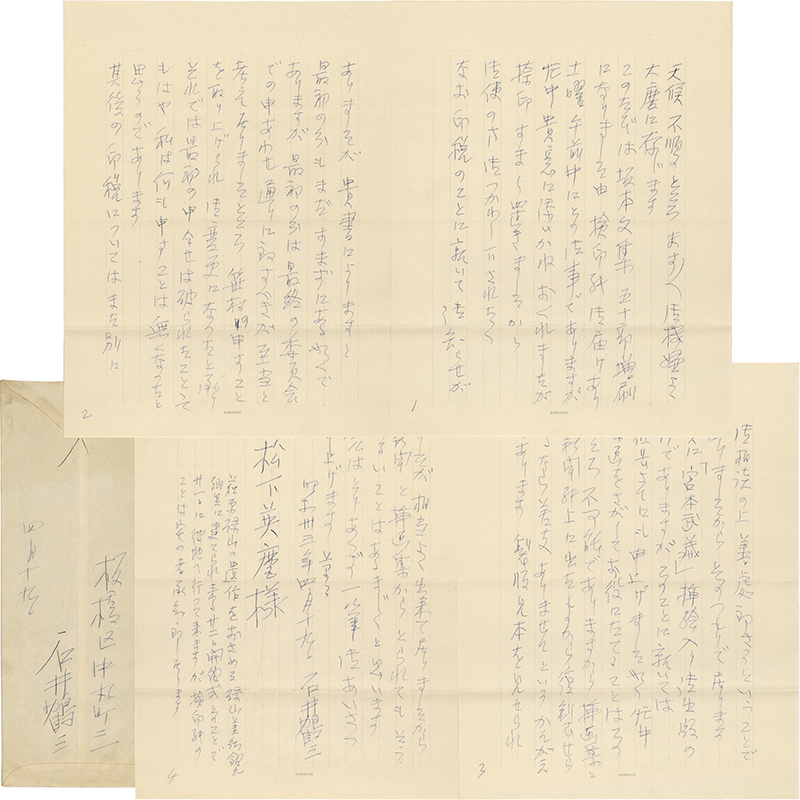 天候不順のところ ますます御機嫌よく
大慶に存じます
このたびは坂本文集 五十部増刷
になりました由 検印紙御届けあり
土曜午前中にとの御事でありますが
忙中貴意に添いかね おくれましたが
捺印すまし置きましたから
御使の方御つかわし下されたく
なお印税のことに就いて御知らせが
1
ありましたが 貴書によりますと
最初の分もまだすまずにある如くで
ありますが 最初の分は最終の委員会
での申あわせ通りに致すべきが至当と
考え居りましたところ 笹村の申すこと
を取り上げられ御変更になったと承り
それでは最初の申合せは破られたことゝて
もはや私は何も申すことは無くなったと
思うのであります
其後の印税についてはまた別に
2
御相談の上善処致そうということで
ありましたから そのつもりで居ります
次に「宮本武蔵」挿絵入り御出版の
でありますが このことに就いては
にも申上げました如く 忙中
をさがしてお役にたてることはその
ところ不可能でありますから 挿画集と
新聞紙上に出たものから復製せら
るゝなら差支ありませんというかんがえ
あります 製版見本を見せられ
3
したが 相当よく出来て居りましたから
新聞と挿画集からとられてもそう
まいことはあるまいと思います
先はとりあえず一筆御あいさつ
上げます 草々
昭和卅三年四月十九日 石井鶴三
松下英麿様
萩原碌山の遺作をおさめる碌山美術館
郷里に建てられ 来る廿二日開館式とのことで
廿一日に彼地へ行って来ますが 検印紙の
ことは家の者承知致し居ります
4
四月十九日
板橋区中丸町二
石井鶴三